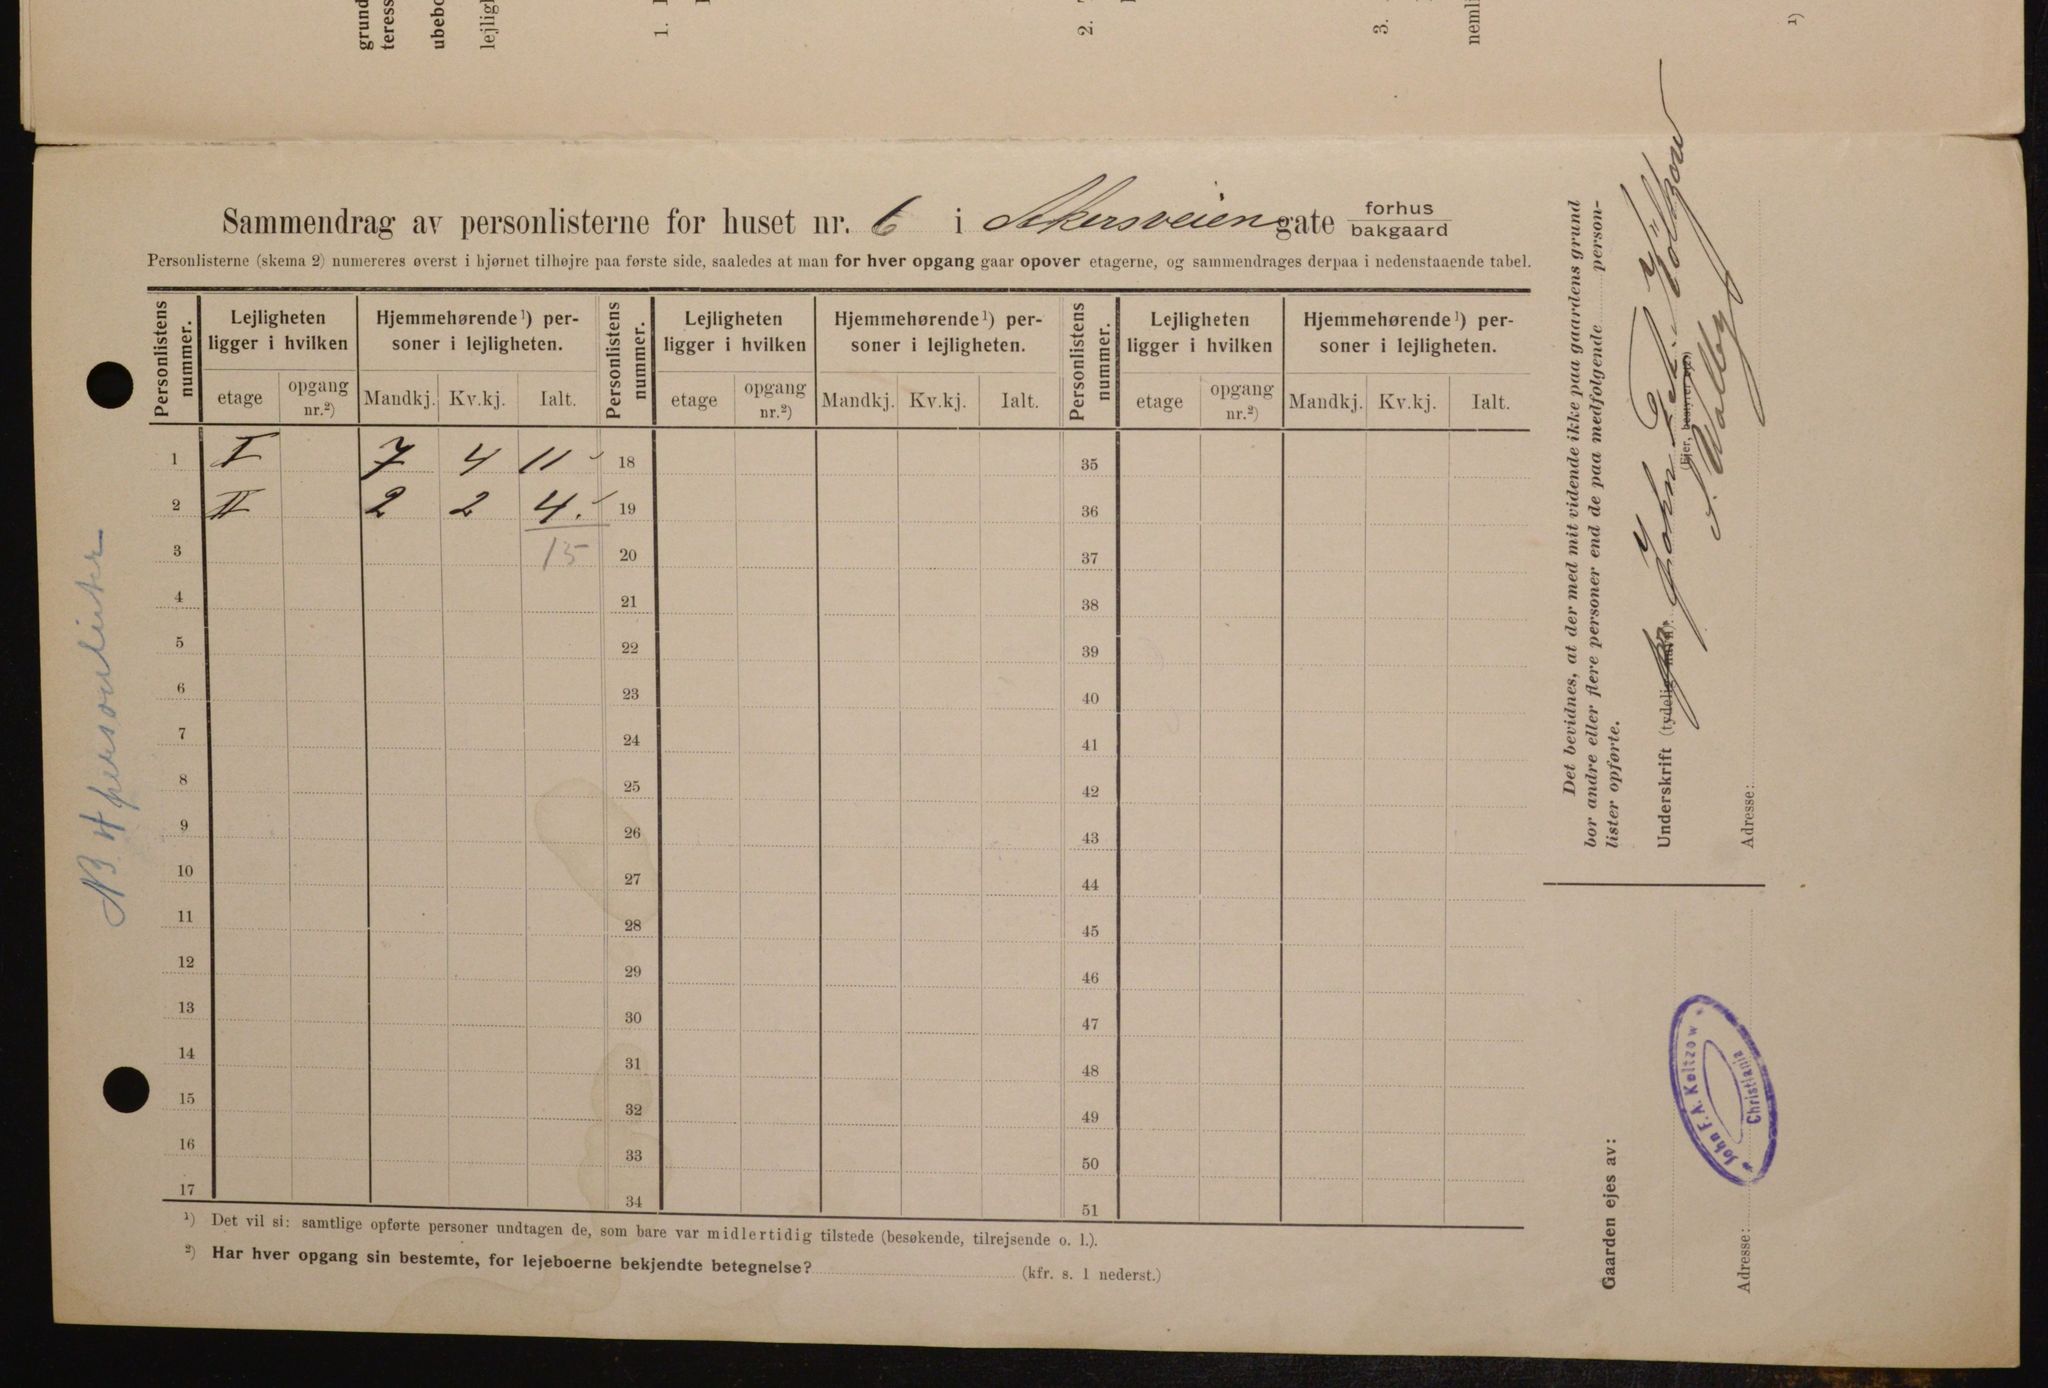 grund
teress
ubebo
lejligh
1.
2.
3.
nemli
1)
Sammendrag av personlisterne for huset nr. 6 i Akersveien gate forhus
bakgaard
Personlisterne (skema 2) numereres øverst i hjørnet tilhøjre paa første side, saaledes at man for hver opgang gaar opover etagerne, og sammendrages derpaa i nedenstaaende tabel.
Personlistens nummer. Lejligheten ligger i hvilken Hjemmehørende 1) personer i lejligheten. Personlistens nummer. Lejligheten ligger i hvilken Hjemmehørende 1) personer i lejligheten. Personlistens nummer. Lejligheten ligger i hvilken Hjemmehørende 1) personer i lejligheten.
etage opgang nr.2) Mandkj. Kv.kj. Ialt. etage opgang nr.2) Mandkj. Kv.kj. Ialt. etage opgang nr.2) Mandkj. Kv.kj. Ialt.
1 I 7 4 11 18 35
2 II 2 2 4. 19 36
3 15 20 37
4 21 38
5 22 39
6 23 40
7 24 41
8 25 42
9 26 43
10 27 44
11 28 45
12 29 46
13 30 47
14 31 48
15 32 49
16 33 50
17 34 51
1) Det vil si: samtlige opførte personer undtagen de, som bare var midlertidig tilstede (besøkende, tilrejsende o. l.).
2) Har hver opgang sin bestemte, for lejeboerne bekjendte betegnelse? (kfr. s. 1 nederst.)
NB 4 personlister
Det bevidnes, at der med mit vidende ikke paa gaardens grund
bor andre eller flere personer end de paa medfølgende person-
lister opførte.
Underskrift (tydelig navn): John Költzow
(Ejer, bestyrer etc.)
Adresse:
Gaarden ejes av:
John F. A. Költzow
Christiania
Adresse: